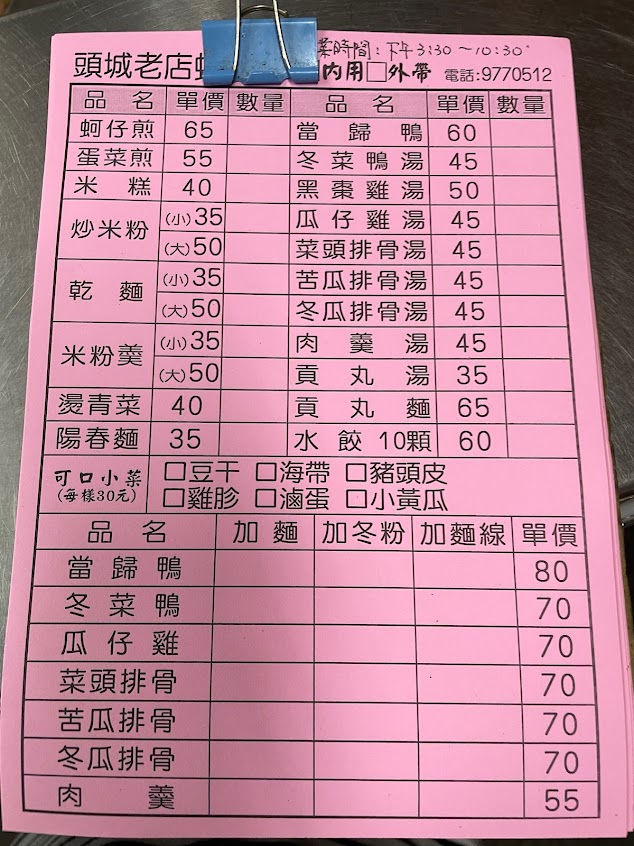 頭城老店
業時間:下午3:30～10:30
內用□外帶 電話:9770512
品名 單價 數量 品名 單價 數量
蚵仔煎 65 當歸鴨 60
蛋菜煎 55 冬菜鴨湯 45
米糕 40 黑棗雞湯 50
炒米粉 (小)35 瓜仔雞湯 45
(大)50 菜頭排骨湯 45
乾麵 (小)35 苦瓜排骨湯 45
(大)50 冬瓜排骨湯 45
米粉羹 (小)35 肉羹湯 45
(大)50 貢丸湯 35
燙青菜 40 貢丸麵 65
陽春麵 35 水餃10顆 60
可口小菜 □豆干 □海帶 □豬頭皮
(每樣30元) □雞胗 □滷蛋 □小黃瓜
品名 加麵 加冬粉 加麵線 單價
當歸鴨 80
冬菜鴨 70
瓜仔雞 70
菜頭排骨 70
苦瓜排骨 70
冬瓜排骨 70
肉羹 55